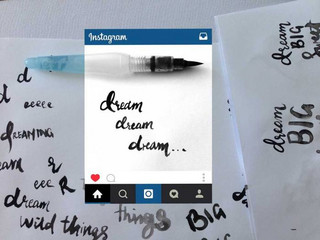 Instagram
dream
dream
dream...
d
eeee
DREAMING
eee R
dream
wild things
things
BIG
dream
BIG
dream
BIG